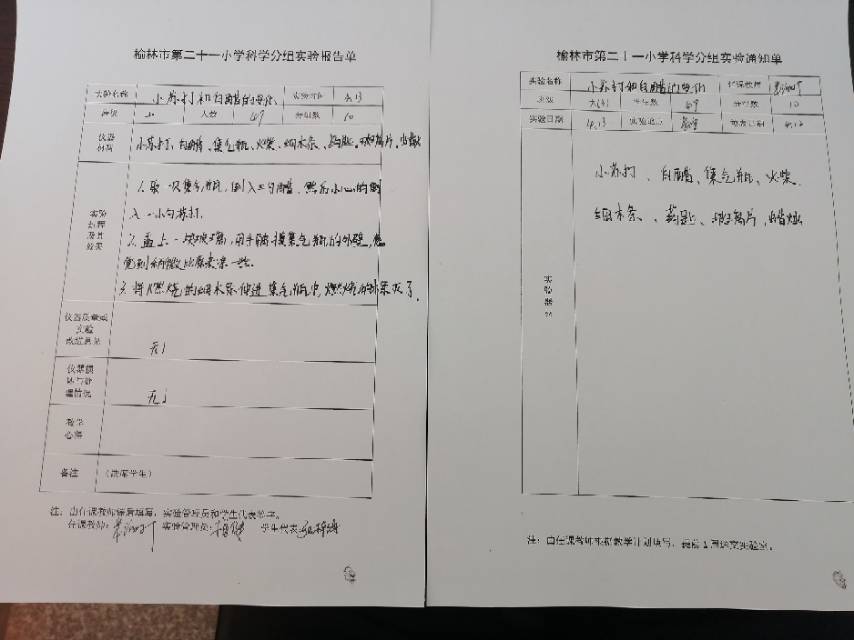 榆林市第二十一小学科学分组实验报告单
实验名称 小苏打和白醋的变化 实验时间 4.13
班级 人数 49 分组数 10
仪器材料 小苏打、白醋、集气瓶、火柴、细木条、药匙、玻璃片、蜡烛
实验过程及其效果
1. 取一只集气瓶,倒入三勺白醋,然后小心的倒
入一小勺苏打.
2. 盖上一块玻璃,用手触摸集气瓶的外壁,感
觉到稍微比原来凉一些.
3. 将燃烧的细木条伸进集气瓶中,燃烧的木条灭了.
仪器质量或实验改进意见 无
仪器损坏与处理情况 无
教学心得
备注 (供库学生)
注:由任课教师保质填写,实验管理员和学生代表签字。
任课教师: 实验管理员: 学生代表:
榆林市第二十一小学科学分组实验通知单
实验名称 小苏打和白醋的变化 任课教师
班级 六(4) 学生数 49 分组数 10
实验日期 4.13 实验地点 4.13
实验器材
小苏打、白醋、集气瓶、火柴、
细木条、药匙、玻璃片,蜡烛
注:由任课教师根据教学计划填写,提前1周送交实验室。